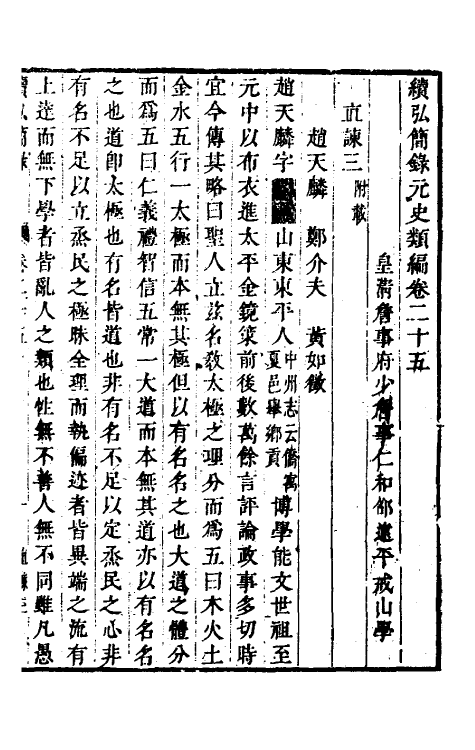 續弘簡錄元史類編卷二十五
皇清詹事府少詹事仁和邵遠平戒山學
直諫三附載
趙天麟 鄭介夫 黃如徵
趙天麟字山東東平人中州志云僑寓夏邑舉鄉貢博學能文世祖至
元中以布衣進太平金鏡策前後數萬餘言評論政事多切時
宜今傳其略曰聖人立法名敎太極之理分而爲五曰木火土
金水五行一太極而本無其極但以有名名之也大道之體分
而爲五曰仁義禮智信五常一大道而本無其道亦以有名名
之也道卽太極也有名皆道也非有名不足以定烝民之心非
有名不足以立烝民之極昧全理而執偏迹者皆異端之流有
上達而無下學者皆亂人之類也性無不善人無不同雖凡愚